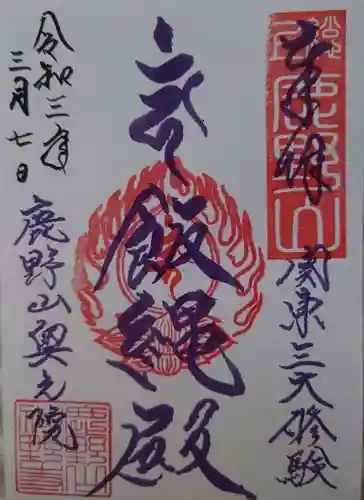 奉拝
鹿野山
関東三天修験
飯縄殿
令和三年
三月七日
鹿野山奥之院